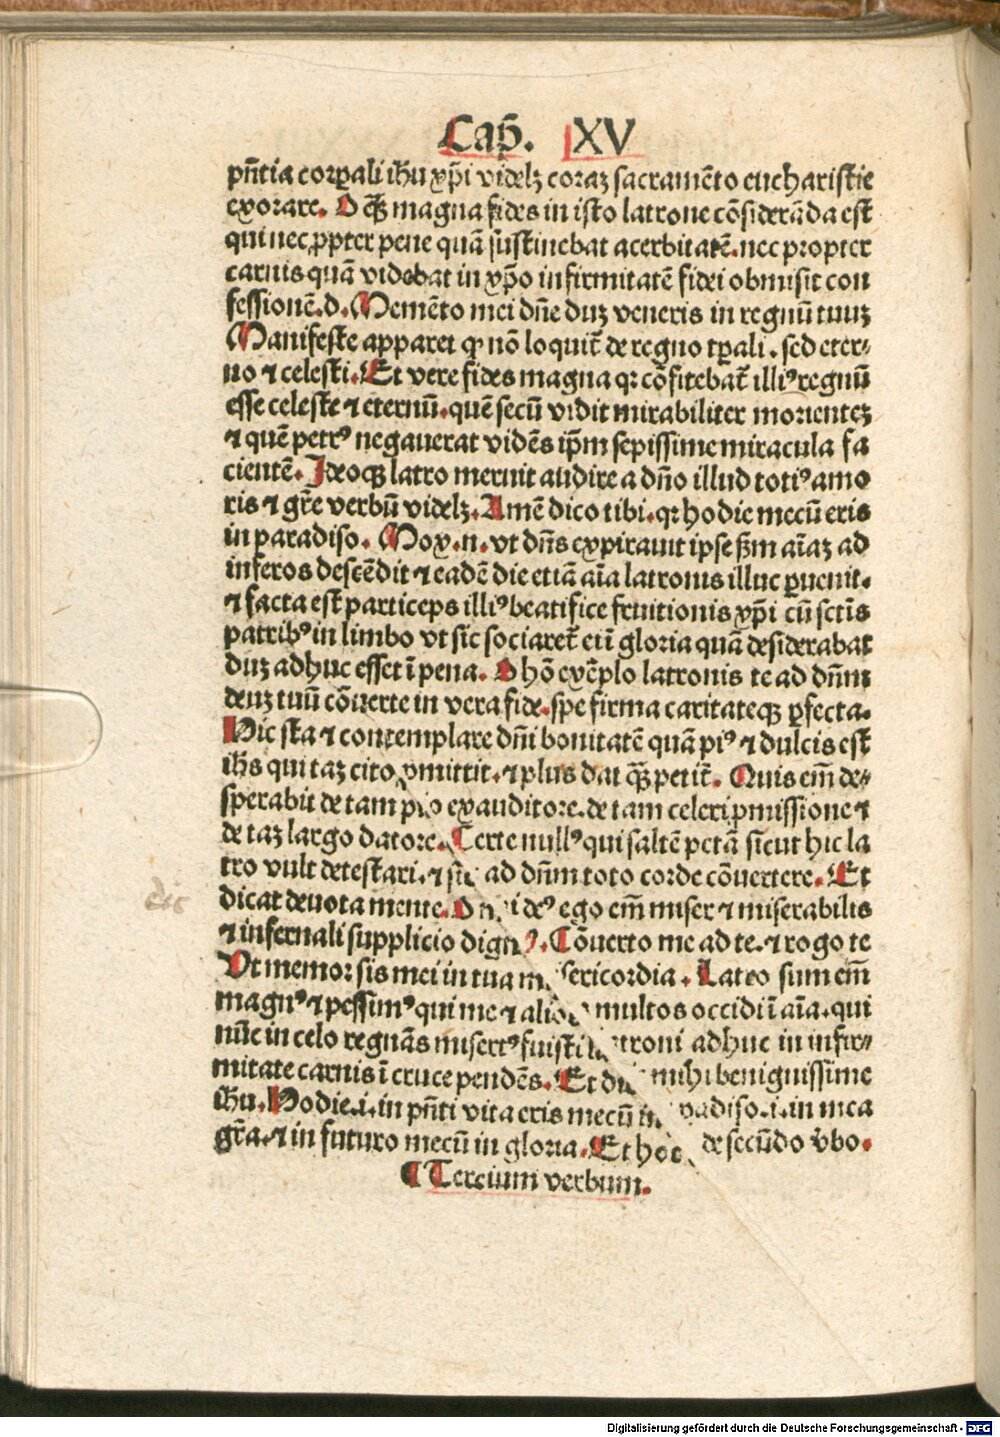 Cap̄. XV
pn̄tia corꝑali ihū xp̄i videlꝫ coraꝫ sacramēto eucharistie
exorare. O qꝫ̄ magna fides in isto latrone cōsiderāda est
qui nec ꝓpter pene quā sustinebat acerbitatē. nec propter
carnis quā videbat in xp̄o infirmitatē fidei obmisit con
fessionē. d. Memēto mei dn̄e duꝫ veneris in regnū tuuꝫ
Manifeste apparet ꝙ nō loquit̄ de regno tꝑali. sed eter⸗
no ⁊ celesti. Et vere fides magna qꝛ cōfitebat̄ illiꝰ regnū
esse celeste ⁊ eternū. quē secū vidit mirabiliter morienteꝫ
⁊ quē petrꝰ negauerat vidēs ip̄m sepissime miracula fa
cientē. Ideoqꝫ latro meruit audire a dn̄o illud totiꝰ amo
ris ⁊ gr̄e verbū videlꝫ. Amē dico tibi. qꝛ hodie mecū eris
in paradiso. Mox. n. vt dn̄s expirauit ipse ẜm aīaꝫ ad
inferos descēdit ⁊ eadē die etiā aīa latronis illuc ꝑuenit.
⁊ facta est particeps illiꝰ beatifice fruitionis xp̄i cū sctīs
patribꝰ in limbo vt sic sociaret̄ eī gloria quā desiderabat
duꝫ adhuc esset ī pena. O hō exēplo latronis te ad dn̄m
deuꝫ tuū cōuerte in vera fide. spe firma caritateqꝫ ꝑfecta.
Hic sta ⁊ contemplare dn̄i bonitatē quā piꝰ ⁊ dulcis est
ihs̄ qui taꝫ cito ꝓmittit. ⁊ plus dat qꝫ̄ petit̄. Quis em̄ de⸗
sperabit de tam pio exauditore. de tam celeri ꝓmissione ⁊
de taꝫ largo datore. Certe nullꝰ qui saltē petā sicut hic la
tro vult detestari. ⁊ sic ad dn̄m toto corde cōuertere. Et
dicat deuota mente. O mi deꝰ ego em̄ miser ⁊ miserabilis
⁊ infernali supplicio dignꝰ. Cōuerto me ad te. ⁊ rogo te
Vt memor sis mei in tua misericordia. Latro sum em̄
magnꝰ ⁊ pessimꝰ qui me ⁊ alios multos occidi ī aīa. qui
nūc in celo regnās misertꝰ fuisti latroni adhuc in infir⸗
mitate carnis ī cruce pendēs. Et dic mihi benignissime
ihū. Hodie. i. in pn̄ti vita eris mecū in padiso. i. in mea
gr̄a. ⁊ in futuro mecū in gloria. Et hec de secūdo v̄bo.
¶ Tercium verbum.
dic
Digitalisierung gefördert durch die Deutsche Forschungsgemeinschaft - DFG